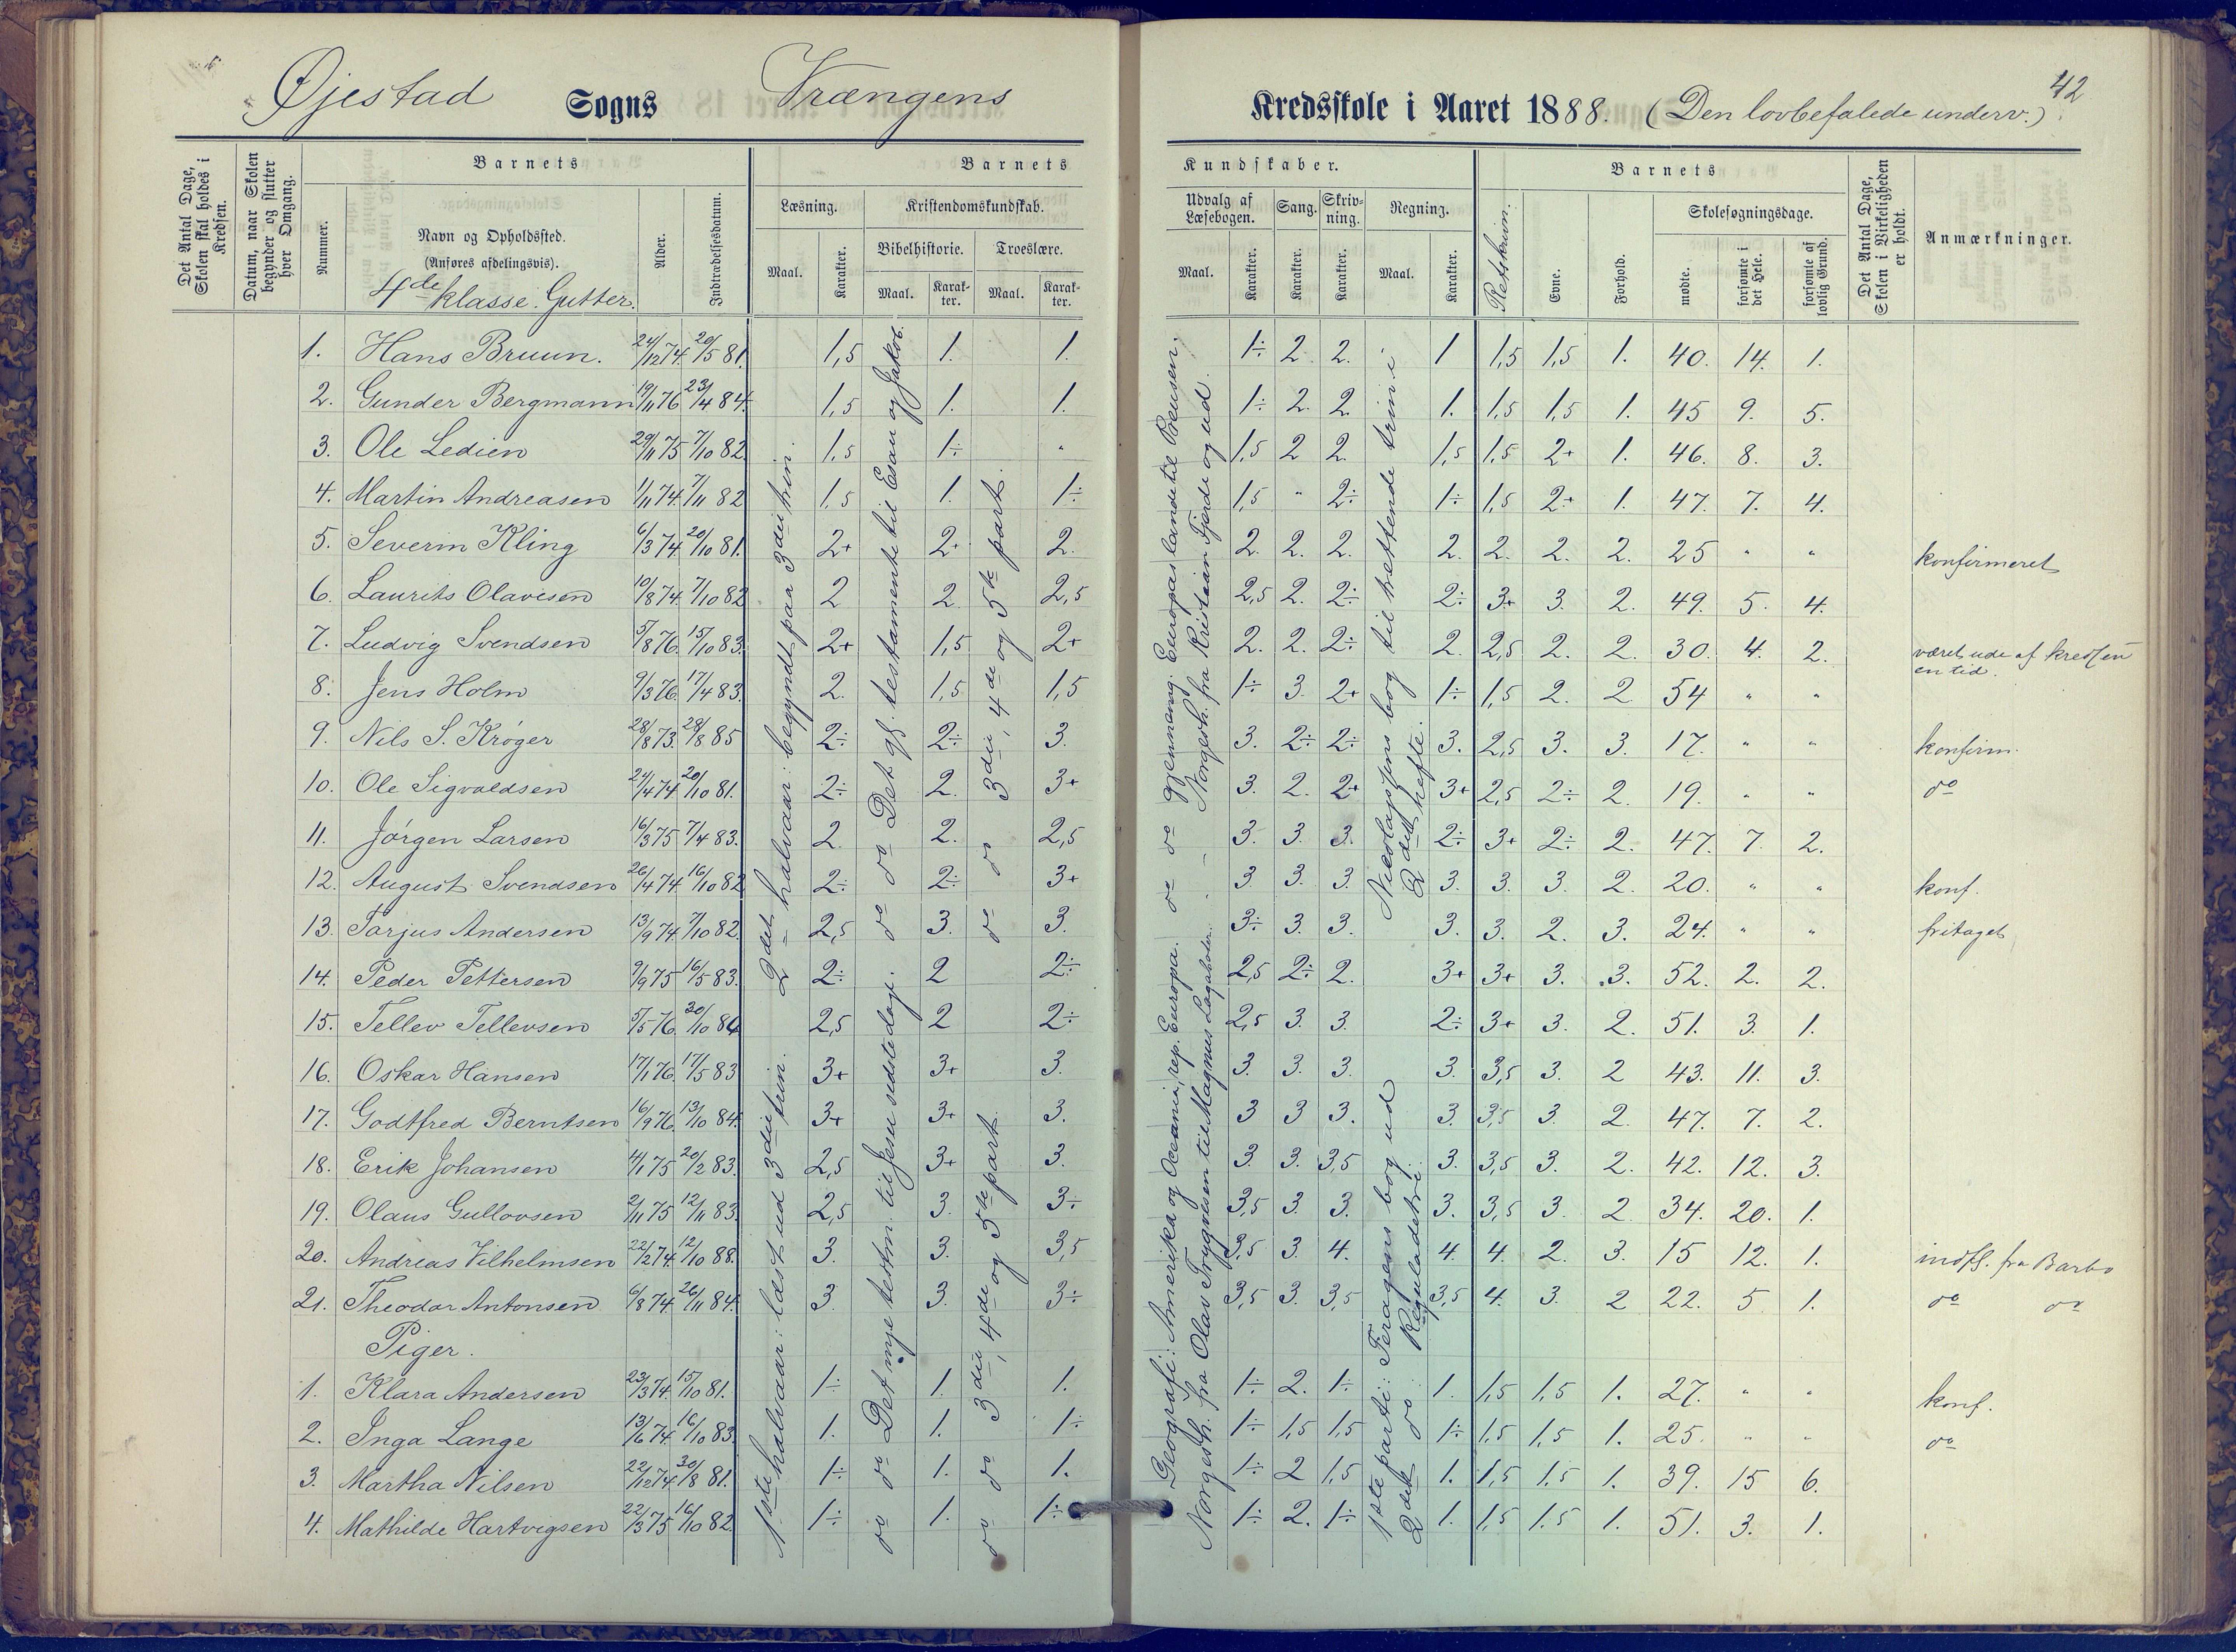 Øjestad Sogns Vrængens Kredsskole i Aaret 1888. (Den lovbefalede underv.)
42
Det Antal Dage, Skolen skal holdes i Kredsen.
Datum, naar Skolen begynder og slutter hver Omgang.
Barnets
Nummer.
Navn og Opholdssted.
(Anføres afdelingsvis).
4de klasse. Gutter.
Alder.
Indtrædelsesdatum.
Barnets
Læsning.
Maal.
Karakter.
Kristendomskundskab.
Bibelhistorie.
Maal.
Karakter.
Troeslære.
Maal.
Karakter.
Kundskaber.
Udvalg af Læsebogen.
Maal.
Karakter.
Sang.
Karakter.
Skrivning.
Karakter.
Regning.
Maal.
Karakter.
Barnets
Retskrivn.
Evne.
Forhold.
Skolesøgningsdage.
mødte.
forsømte i det Hele.
forsømte af lovlig Grund.
Det Antal Dage, Skolen i Virkeligheden er holdt.
Anmærkninger.
1. Hans Bruun. 24/12 74. 20/5 81. 1,5 1. 1. 1÷ 2 2. 1 1,5 1,5 1. 40. 14. 1.
2. Gunder Bergmann 19/11 76 23/4 84. 1,5 1. 1. 1÷ 2. 2. 1. 1,5 1,5 1. 45 9. 5.
3. Ole Ledien 29/11 75 7/10 82. 1,5 1÷ " 1,5 2 2. 1,5 1,5 2+ 1. 46. 8. 3.
4. Martin Andreasen 1/11 74. 7/11 82 1,5 1. 1÷ 1,5 " 2÷ 1÷ 1,5 2+ 1. 47. 7. 4.
5. Severin Kling 6/3 74. 20/10 81. 2+ 2+ 2. 2. 2. 2. 2. 2. 2. 2. 25 " " konfirmeret
6. Laurits Olavesen 10/8 74. 7/10 82 2 2. 2,5 2,5 2. 2÷ 2÷ 3+ 3. 2. 49. 5. 4.
7. Ludvig Svendsen 5/8 76. 15/10 83. 2+ 1,5 2+ 2. 2. 2÷ 2. 2,5 2. 2. 30. 4. 2. været ude af kredsen en tid.
8. Jens Holm 9/3 76. 17/4 83. 2. 1,5 1,5 1÷ 3. 2+ 1÷ 1,5 2. 2 54 " "
9. Nils S. Krøger 28/8 73. 28/8 85 2÷ 2÷ 3. 3. 2÷ 2÷ 3. 2,5 3. 3. 17. " " konfirm.
10. Ole Sigvaldsen 24/4 74 20/10 81. 2÷ 2. 3+ 3. 2. 2+ 3+ 2,5 2÷ 2. 19. " " do
11. Jørgen Larsen 16/3 75 7/4 83. 2. 2. 2,5 3. 3. 3. 2÷ 3+ 2÷ 2. 47. 7. 2.
12. August Svendsen 26/4 74. 16/10 82 2÷ 2÷ 3+ 3. 3. 3. 3. 3. 3. 2. 20. " " konf.
13. Tarjus Andersen 13/9 74. 7/10 82. 2,5 3. 3. 3÷ 3. 3. 3. 3. 2. 3. 24. " " fritaget
14. Peder Pettersen 9/9 75 16/5 83. 2÷ 2 2÷ 2,5 2÷ 2. 3+ 3+ 3. 3. 52. 2. 2.
15. Tellev Tellevsen 5/5 76. 30/10 84 2,5 2 2÷ 2,5 3. 3. 2÷ 3+ 3. 2. 51. 3. 1.
16. Oskar Hansen 17/1 76. 17/5 83 3+ 3+ 3. 3. 3. 3. 3. 3,5 3. 2 43. 11. 3.
17. Godtfred Berntsen 16/9 76. 13/10 84. 3+ 3+ 3. 3 3 3. 3. 3,5 3. 2. 47. 7. 2.
18. Erik Johansen 4/1 75 20/2 83. 2,5 3+ 3. 3. 3. 3,5 3. 3,5 3. 2. 42. 12. 3.
19. Olaus Gullovsen 2/11 75 12/11 83. 2,5 3. 3÷ 3,5 3. 3. 3. 3,5 3. 2 34. 20. 1.
20. Andreas Vilhelmsen 22/12 74. 12/10 88. 3. 3. 3,5 3,5 3. 4. 4. 4. 2. 3. 15 12. 1. indfl. fra Barbo
21. Theodor Antonsen 6/8 74. 26/11 84. 3. 3. 3÷ 3,5 3. 3,5 3,5 4. 3. 2 22. 5 1. do do
Piger.
1. Klara Andersen 23/3 74. 15/10 81. 1÷ 1. 1. 1÷ 2. 1÷ 1. 1,5 1,5 1. 27. " " konf.
2. Inga Lange 13/6 74. 16/10 83. 1. 1. 1÷ 1÷ 1,5 1,5 1÷ 1,5 1,5 1. 25. " " do
3. Martha Nilsen 22/12 74 30/8 81. 1÷ 1. 1. 1÷ 2 1,5 1. 1,5 1.5 1. 39. 15 6.
4. Mathilde Hartvigsen 22/3 75 16/10 82. 1÷ 1. 1÷ 1÷ 2. 1÷ 1. 1,5 1.5 1. 51. 3. 1.
1ste halvaar: læst ud 3die trin.
2det halvaar: begyndt paa 3die trin.
do do Det nye testm. til Jesu sidste dage.
do do Det gl. testamente til Esau og Jakob.
do do 3die, 4de og 5te part.
do do 3die, 4de og 5te part.
Geografi: Amerika og Oceanien, rep. Europa. do do gjennemg. Europas lande til Preusen.
Norgesh. fra Olav Trygvesen til Magnus Lagabøter. — Norgesh. fra Kristian Fjerde og ud.
1ste parti: Feragens bog ud
2det do Reguladetri.
Nicolaysens bog til trettende trin i
2det hefte.